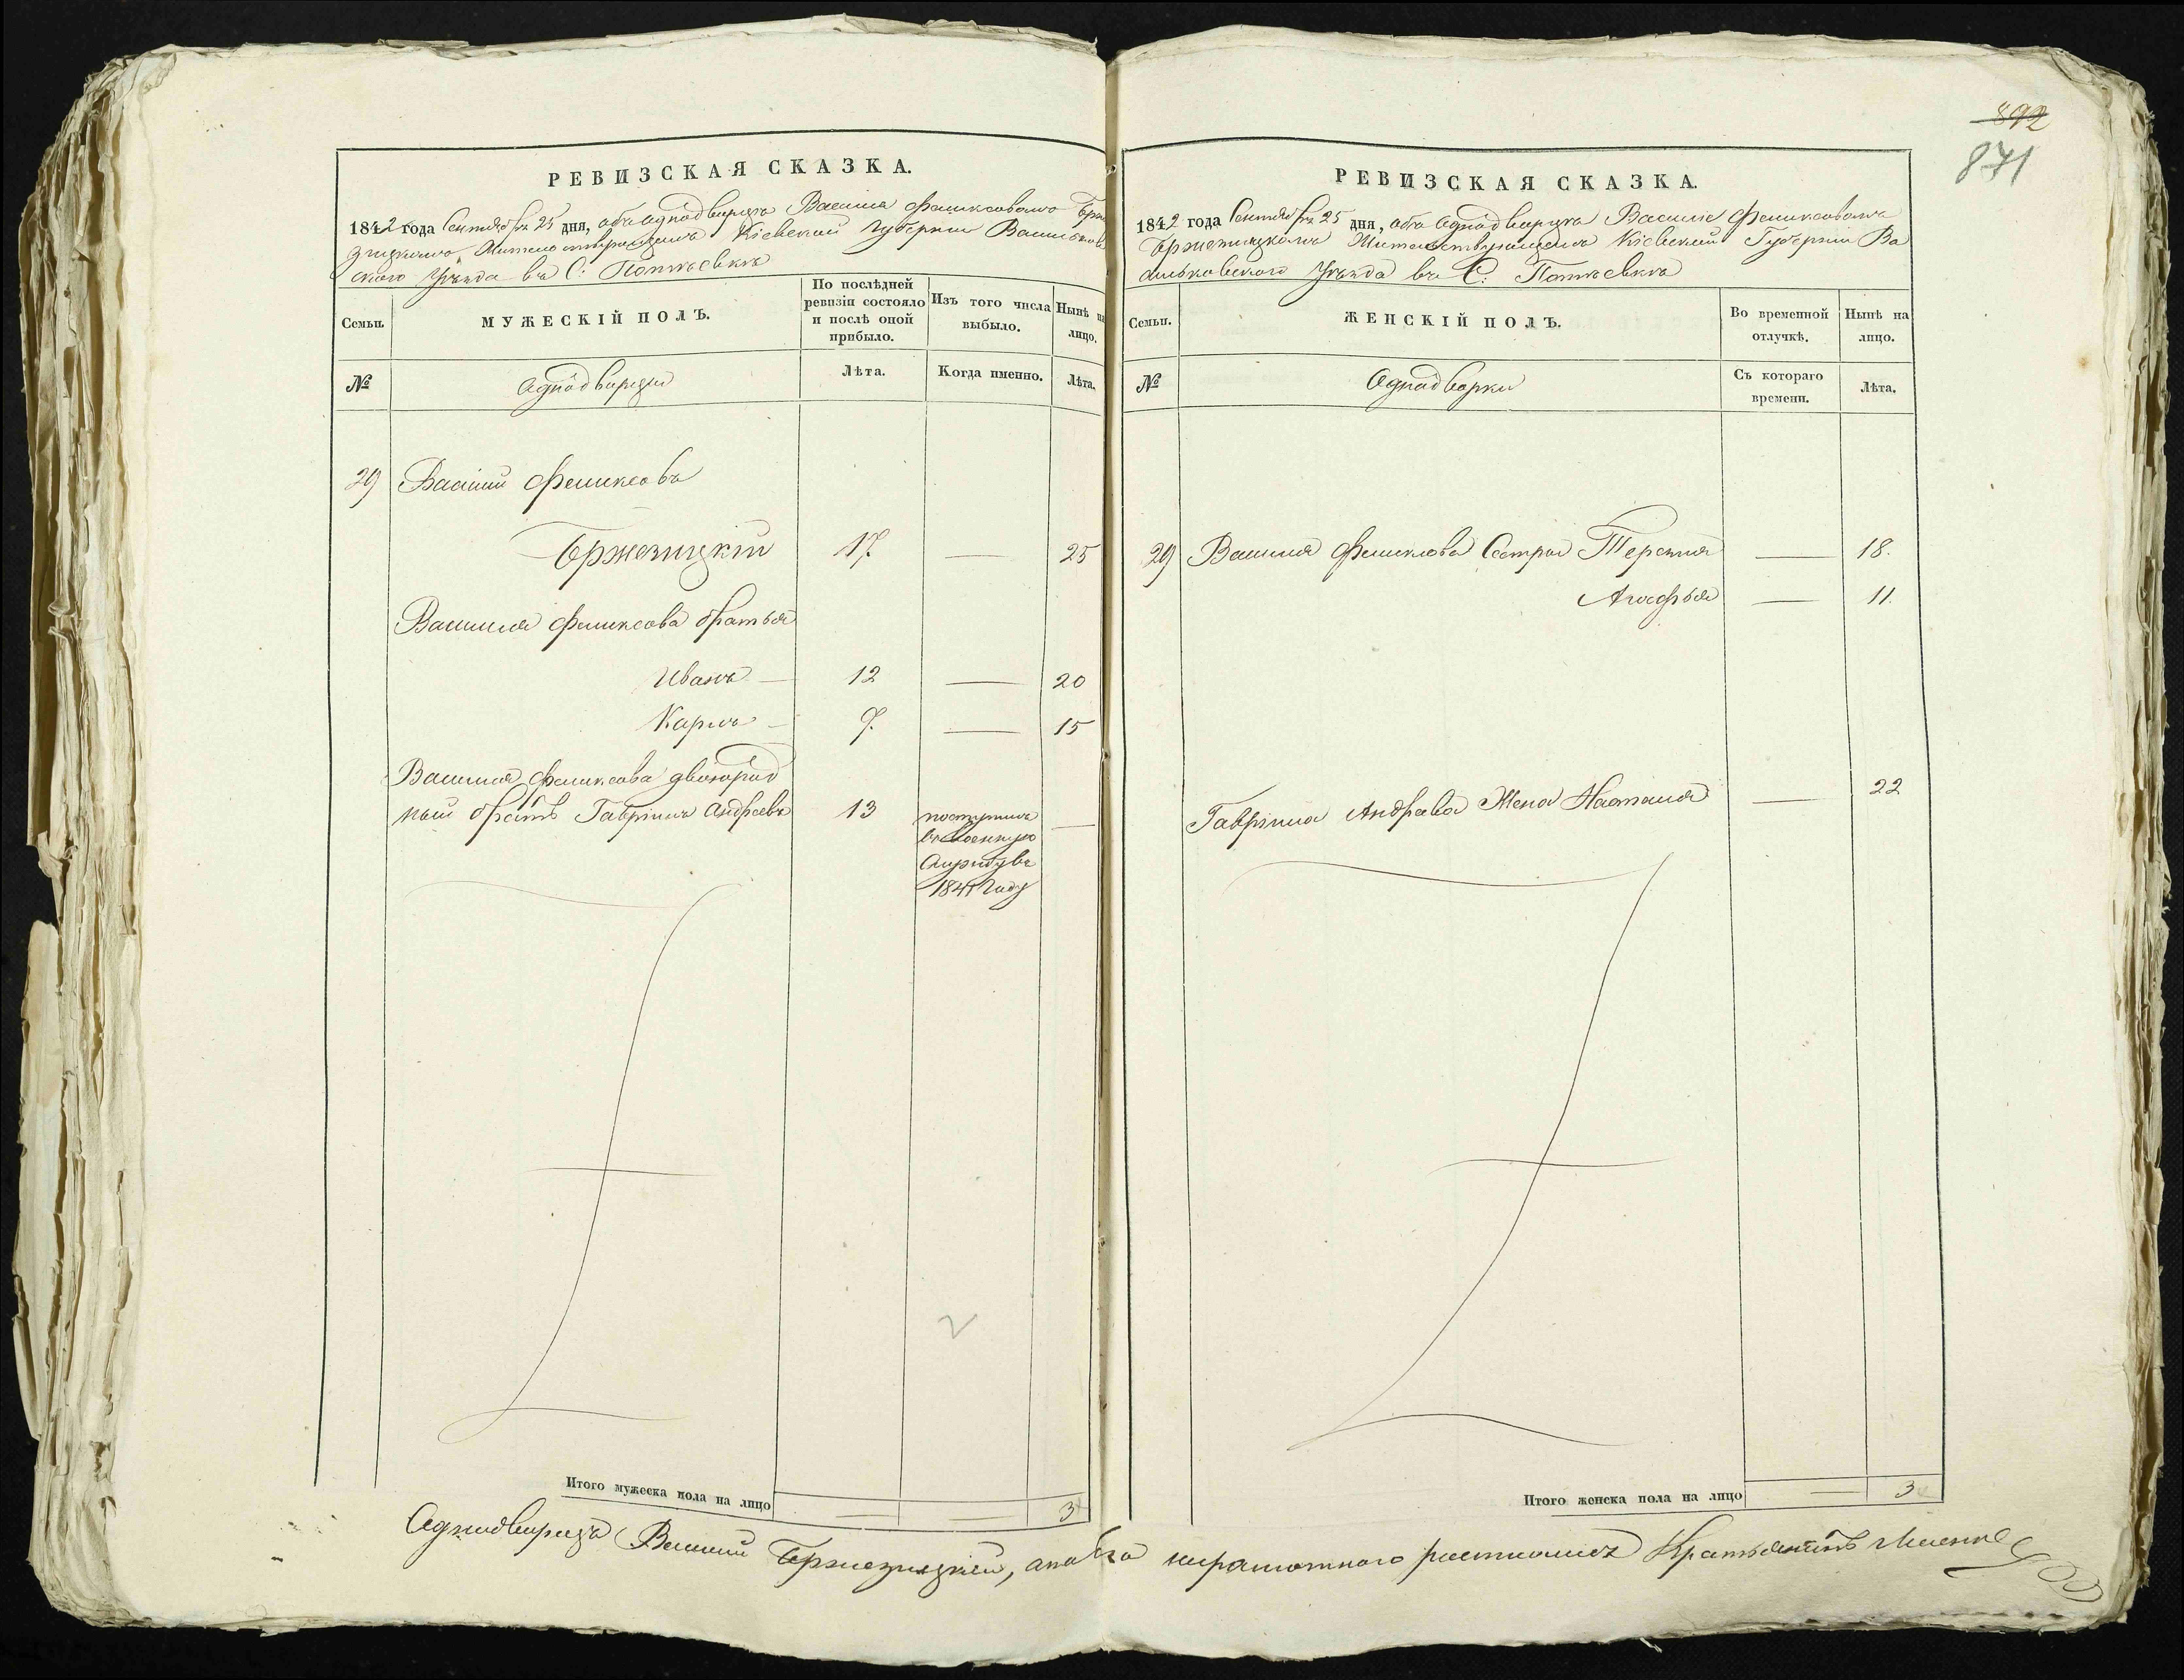 892
871
РЕВИЗСКАЯ СКАЗКА.
1842 года Сентября 25 дня, объ однодворцѣ Василіѣ Феликсовомъ Брже
зицкомъ, Жительствующемъ Кіевской Губерніи Васильков
скаго Уѣзда въ С: Потіевкѣ
Семьи.
МУЖЕСКІЙ ПОЛЪ.
По послѣдней
ревизіи состояло
и послѣ оной
прибыло.
Изъ того числа
выбыло.
Нынѣ на
лицо.
№
Однодворцы
Лѣта.
Когда именно.
Лѣта.
29 Василій Феликсовъ
Бржезицкій 17. — 25
Василія Феликсова братья
Иванъ — 12 — 20
Карлъ — 7. — 15
Василія Феликсова двоюрод
ный братъ Гавріилъ Андреевъ 13 поступилъ —
въ военную
Службу въ
1841 Году
Итого мужеска пола на лицо — — 3
РЕВИЗСКАЯ СКАЗКА.
1842 года Сентября 25 дня, объ однодворцѣ Василіѣ Феликсовомъ
Бржезицкомъ Жительствующемъ Кіевской Губерніи Ва
сильковскаго Уѣзда въ С: Потіевкѣ
Семьи.
ЖЕНСКІЙ ПОЛЪ.
Во временной
отлучкѣ.
Нынѣ на
лицо.
№
Однодворки
Съ котораго
времени.
Лѣта.
29 Василія Феликсова Сестра Терезія — 18.
Агафья — 11.
Гавріила Андреева Жена Наталія — 22
Итого женска пола на лицо — 3
Однодворецъ Василій Бржезицкій, а по его неграмотного росписался